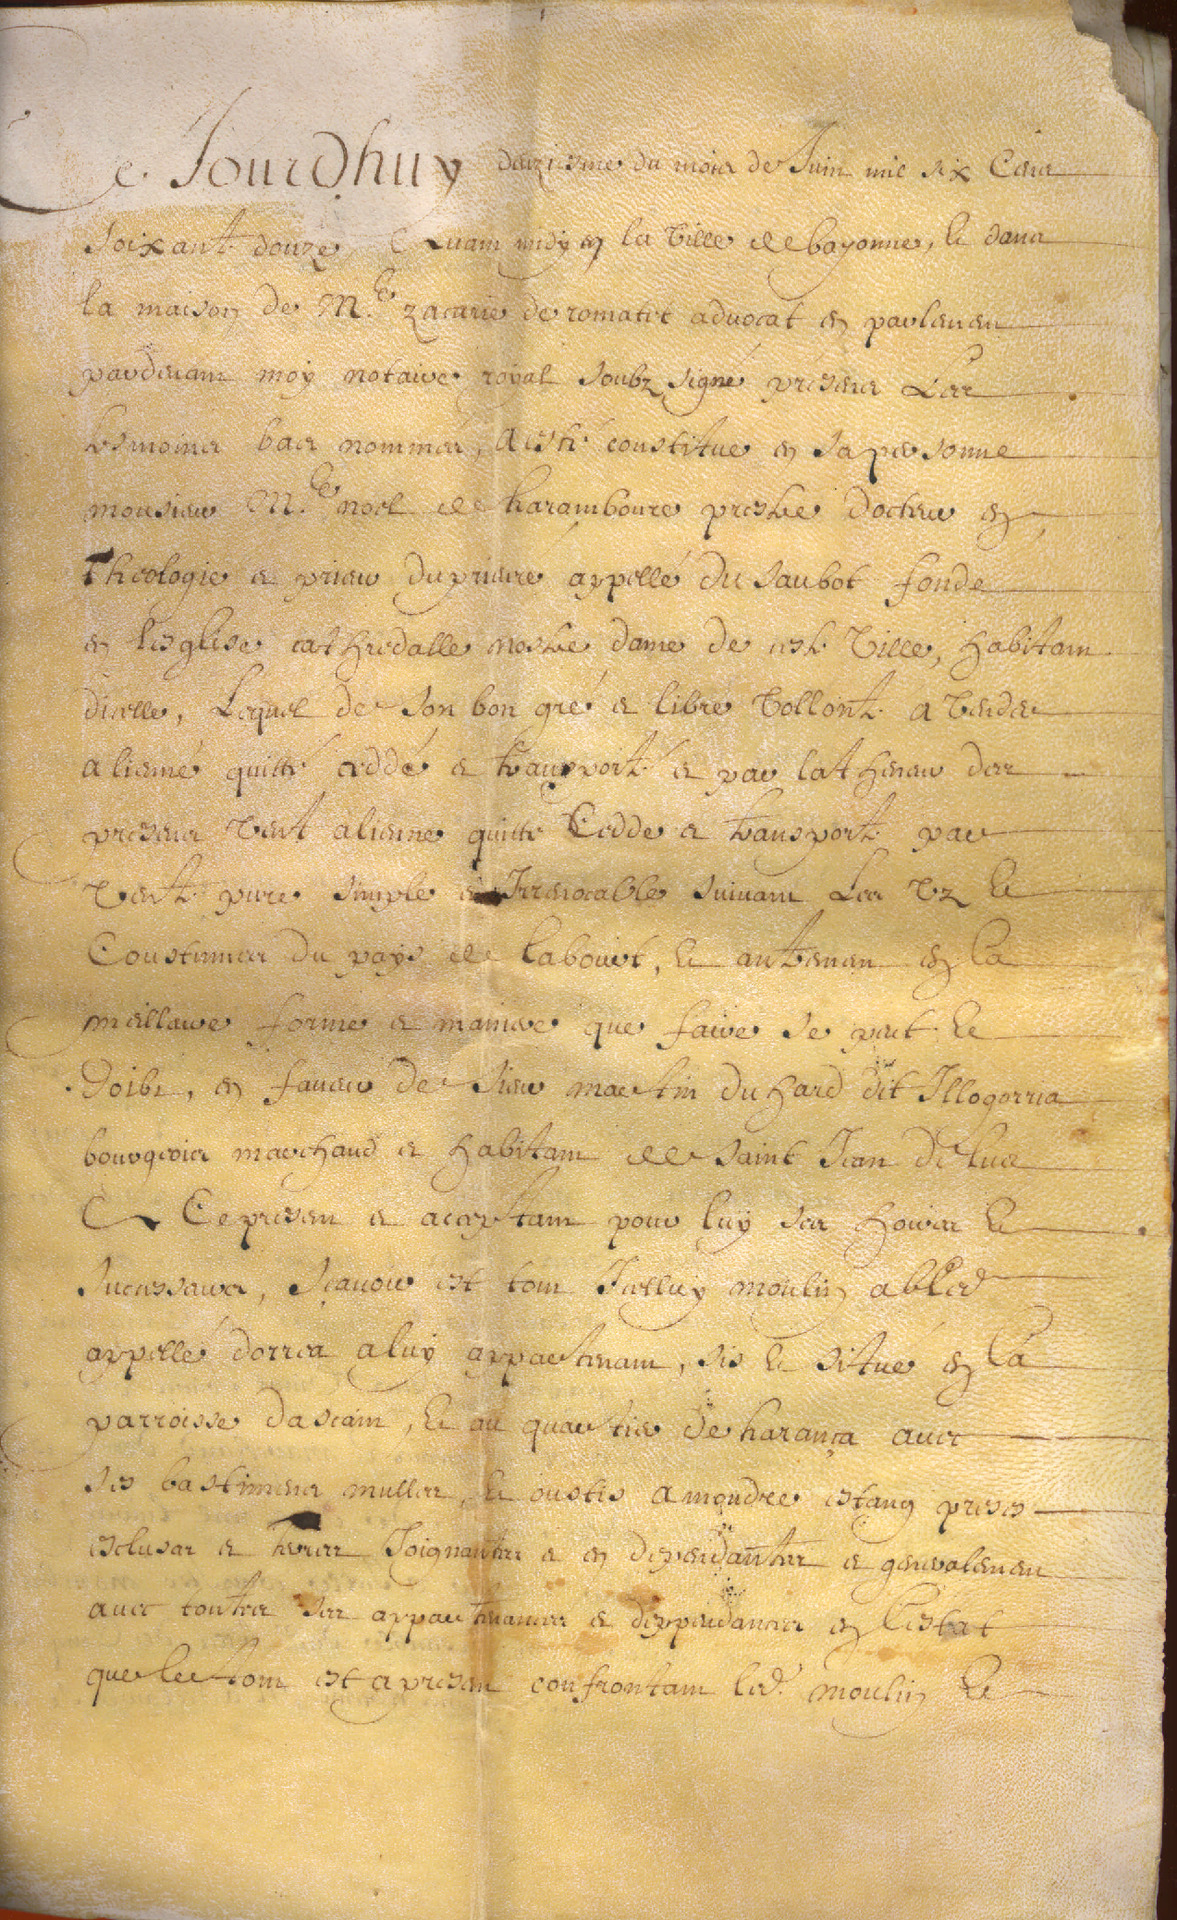 Ce Jourdhuy deuziesme du mois de Juin mil six Cens
soixante douze avant midy en la Ville de bayonne, et dans
la maison de Mre zacarie de romatet advocat en parlemen
pardevant moy notaire royal soubz signé presens Les
tesmoins bas nommés, a esté constitué en sa personne
monsieur Mre noel de haramboure prestre docteur en
theologie et prieur du prieuré appellé du saubot fondé
en lesglise cathredalle nostre dame de cette Ville, habitant
dicelle, Lequel de son bon gré et libre Vollonté a Vendu
aliené quitté ceddé et transporté et par la teneur des
presens Vent aliene quitte Cedde et transporte par
Vente pure simple et Irrevocable suivant Les Uz et
Coustumes du pays de labourt, et autremen en la
meilleure forme et maniere que faire se peut et
doibt, en faveur de sieur martin duhard dit Illogorria
bourgeois marchand et habitant de saint Jean de luz
Ce presen et acceptant pour luy ses hoirs et
successeurs, scavoir est tout Icelluy moulin a bled
appellé dorrea a luy appartenant, sis et situé en la
parroisse dascain, et au quartier de harança avec
ses bastimens mulles, et oustis a moudre estang preses
escluses et terres Joignantes et en dependantes et generalemen
avec toutes ses appartenances et deppendances en lestat
que le tout est a presen confrontant led. moulin et